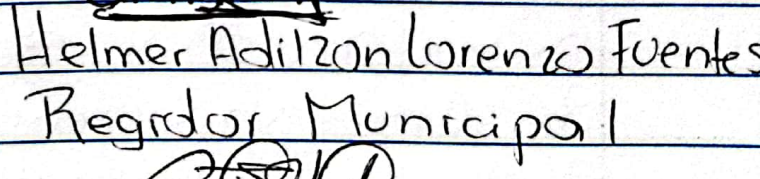 Helmer Adilzon Lorenzo Fuentes
Regidor Municipal